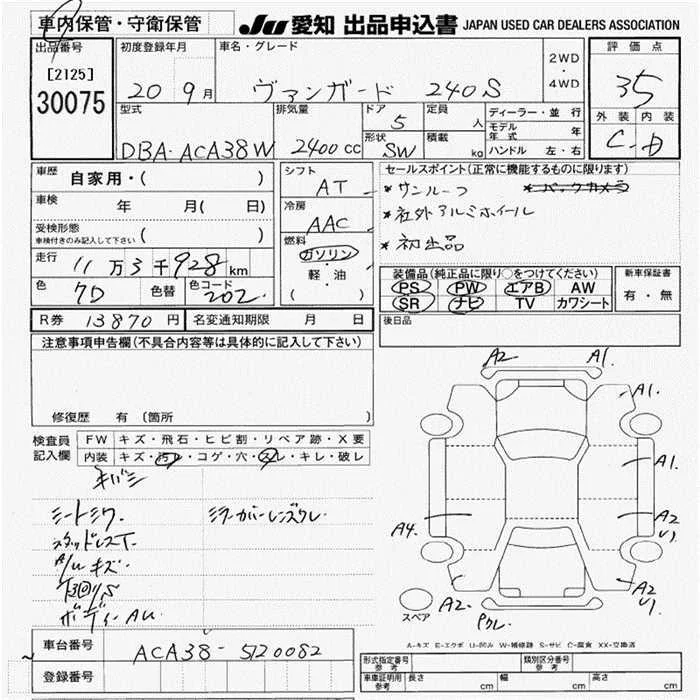 車内保管・守衛保管
JU 愛知 出品申込書 JAPAN USED CAR DEALERS ASSOCIATION
出品番号 初度登録年月 車名・グレード 2WD・4WD 評価点
[2125]
30075 20 9月 ヴァンガード 240S 35
型式 排気量 ドア 5 定員 人 ディーラー・並行 外装 内装
モデル年式 年
DBA-ACA38W 2400cc 形状 SW 積載 kg ハンドル 左・右 C D
車歴 自家用・( )
シフト AT
セールスポイント(正常に機能するものに限ります)
車検 年 月( 日)
冷房 AAC
*サンルーフ *バックカメラ
*社外アルミホイール
*初出品
受検形態
車検付きのみ記入して下さい ( )
燃料 ガソリン
軽・油
( )
走行 11万3千928km
装備品(純正品に限り○をつけてください) 新車保証書
色 7D 色替 色コード 202
PS PW エアB AW
SR ナビ TV カワシート 有・無
R券 13870円 名変通知期限 月 日
後日品
注意事項申告欄(不具合内容等は具体的に記入して下さい)
修復歴 有 [箇所
A2 A1.
A1.
A1.
A4. A2
A2. A2
検査員記入欄 FW キズ・飛石・ヒビ割・リペア跡・X要
内装 キズ・汚レ・コゲ・穴・スレ・キレ・破レ
シートシワ. ミラーカバーレンズクレ.
スタッドレスT.
A/Wキズ.
スペア
A-キズ E-エクボ U-凹み W-補修跡 S-サビ C-腐食 XX-交換済
車台番号 ACA38-5120082
登録番号
形式指定番号 参考 類別区分番号 参考
車庫証明用 参考 長さ cm 幅 cm 高さ cm